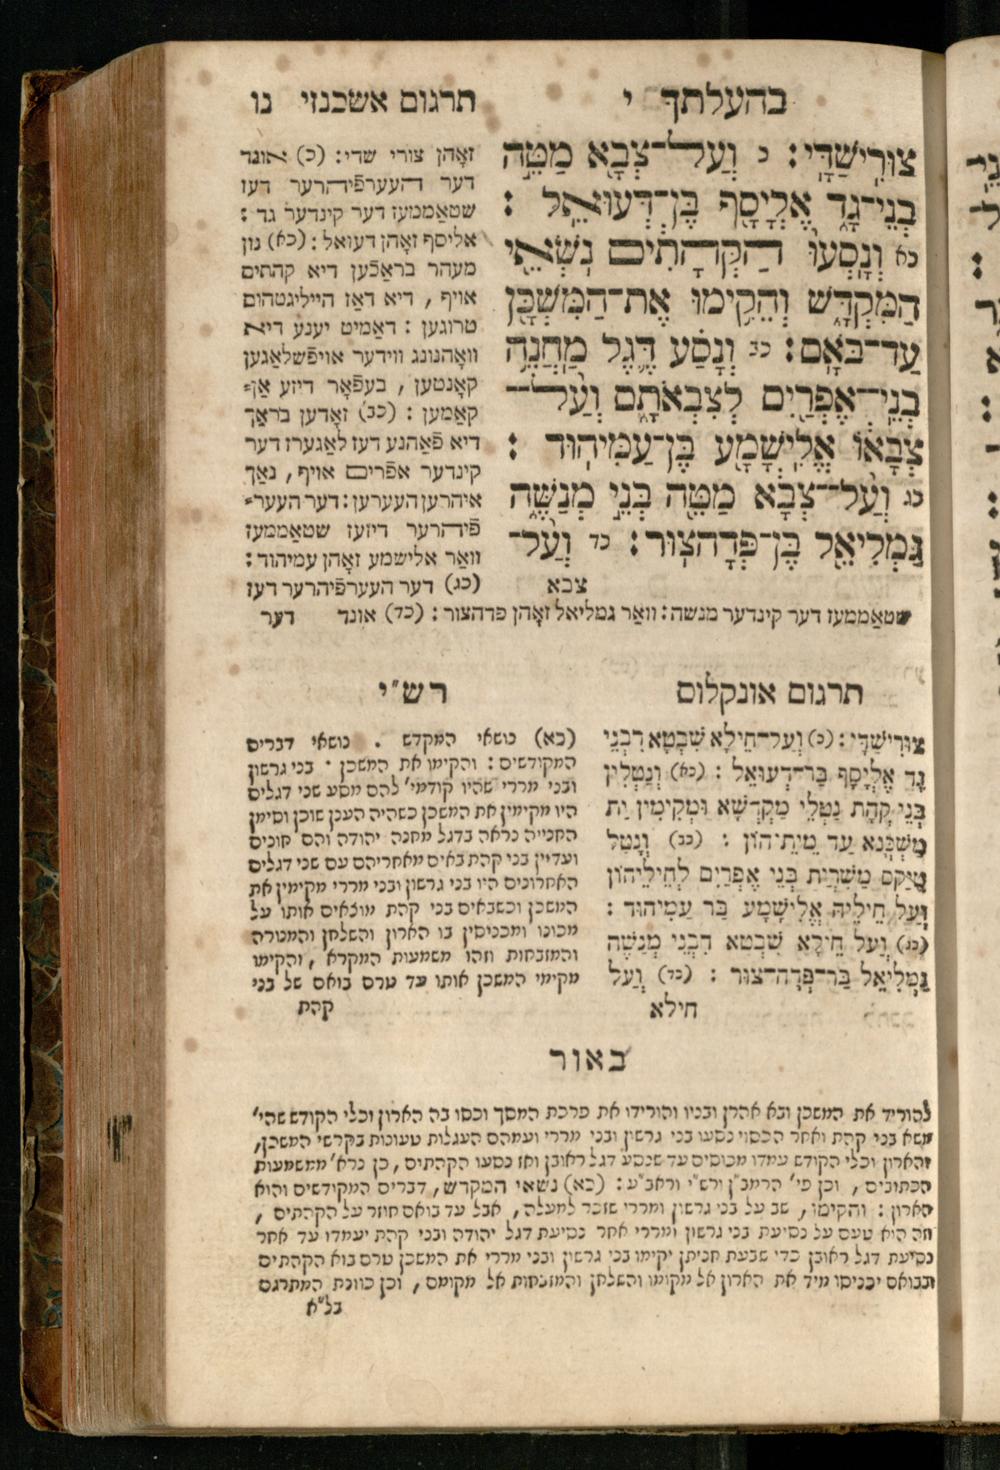 בהעלתך י תרגום אשכנזי נו
צוּרִישַׁדָּי׃ כ וְעַל־צְבָא מַטֵּה
בְּנֵי־גָד אֶלְיָסָף בֶּן־דְּעוּאֵל׃
כא וְנָסְעוּ הַקְּהָתִים נֹשְׂאֵי
הַמִּקְדָּשׁ וְהֵקִימוּ אֶת־הַמִּשְׁכָּן
עַד־בֹּאָם׃ כב וְנָסַע דֶּגֶל מַחֲנֵה
בְנֵי־אֶפְרַיִם לְצִבְאֹתָם וְעַל־
צְבָאוֹ אֱלִישָׁמָע בֶּן־עַמִּיהוּד׃
כג וְעַל־צְבָא מַטֵּה בְּנֵי מְנַשֶּׁה
גַּמְלִיאֵל בֶּן־פְּדָהצוּר׃ כד וְעַל־
צבא
זאָהן צורי שדי: (כ) אונד
דער העערפֿיהרער דעז
שטאַממעז דער קינדער גד:
אליסף זאָהן דעואל: (כא) נון
מעהר בראַכֿען דיא קהתים
אויף, דיא דאַז הייליגטהום
טרוגען: דאַמיט יענע דיא
וואָהנונג ווידער אויפֿשלאַגען
קאָנטען, בעפֿאָר דיזע אַנ⸗
קאַמען: (כב) זאָדען בראַך
דיא פֿאַהנע דעז לאַגערז דער
קינדער אפרים אויף, נאַך
איהרען העערען: דער העער⸗
פֿיהרער דיזעז שטאַממעז
וואַר אלישמע זאָהן עמיהוד:
(כג) דער העערפֿיהרער דעז
שטאַממעז דער קינדער מנשה: וואַר גמליאל זאָהן פדהצור: (כד) אונד דער
תרגום אונקלוס
צוּרִישַׁדָּי: (כ) וְעַל־חֵילָא שִׁבְטָא דִבְנֵי
גָד אֶלְיָסָף בַּר־דְּעוּאֵל: (כא) וְנָטְלִין
בְּנֵי קְהָת נָטְלֵי מַקְדְּשָׁא וּמְקִימִין יָת
מַשְׁכְּנָא עַד מֵיתֵיהוֹן: (כב) וְנָטֵל
טֵיקַס מַשִׁרְיַת בְּנֵי אֶפְרַיִם לְחֵילֵיהוֹן
וְעַל חֵילֵיהּ אֱלִישָׁמָע בַּר עַמִיהוּד:
(כג) וְעַל חֵילָא שִׁבְטָא דִבְנֵי מְנַשֶּׁה
גַּמְלִיאֵל בַּר־פְּדָה־צוּר: (כד) וְעַל
חילא
רש"י
(כא) נושאי המקדש. נושאי דברים
המקודשים: והקימו את המשכן. בני גרשון
ובני מררי שהיו קודמי' להם מסע שני דגלים
היו מקימין את המשכן כשהיה הענן שוכן וסימן
החנייה נראה בדגל מחנה יהודה והם חונים
ועדיין בני קהת באים מאחריהם עם שני דגלים
האחרונים היו בני גרשון ובני מררי מקימין את
המשכן וכשבאים בני קהת מוצאים אותו על
מכונו ומכניסין בו הארון והשלחן והמנורה
והמזבחות וזהו משמעות המקרא, והקימו
מקימי המשכן אותו עד טרם בואם של בני
קהת
באור
להוריד את המשכן ובא אהרן ובניו והורידו את פרכת המסך וכסו בה הארון וכלי הקודש שהי'
משא בני קהת ואחר הכסוי נסעו בני גרשון ובני מררי ועמהם העגלות טעונות בקרשי המשכן,
והארון וכלי הקודש עמדו מכוסים עד שנסע דגל ראובן ואז נסעו הקהתים, כן נרא' ממשמעות
הכתובים, וכן פי' הרמב"ן ורש"י וראב"ע: (כא) נשאי המקדש, דברים המקודשים והוא
הארון: והקימו, שב על בני גרשון ומררי שזכר למעלה, אבל עד בואם חוזר על הקהתים,
וזה הוא טעם על נסיעת בני גרשון ומררי אחר נסיעת דגל יהודה ובני קהת יעמדו עד אחר
נסיעת דגל ראובן כדי שבעת חניתן יקימו בני גרשון ובני מררי את המשכן טרם בוא הקהתים
ובבואם יכניסו מיד את הארון אל מקומו והשלחן והמזבחות אל מקומם, וכן כוונת המתרגם
בל"א